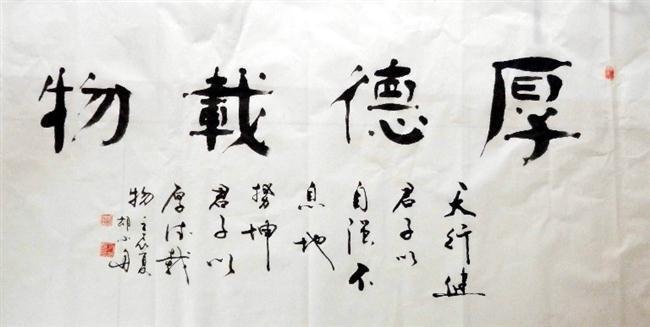 厚德載物
天行健
君子以
自強不
息地
勢坤
君子以
厚德載
物 壬辰夏
胡小